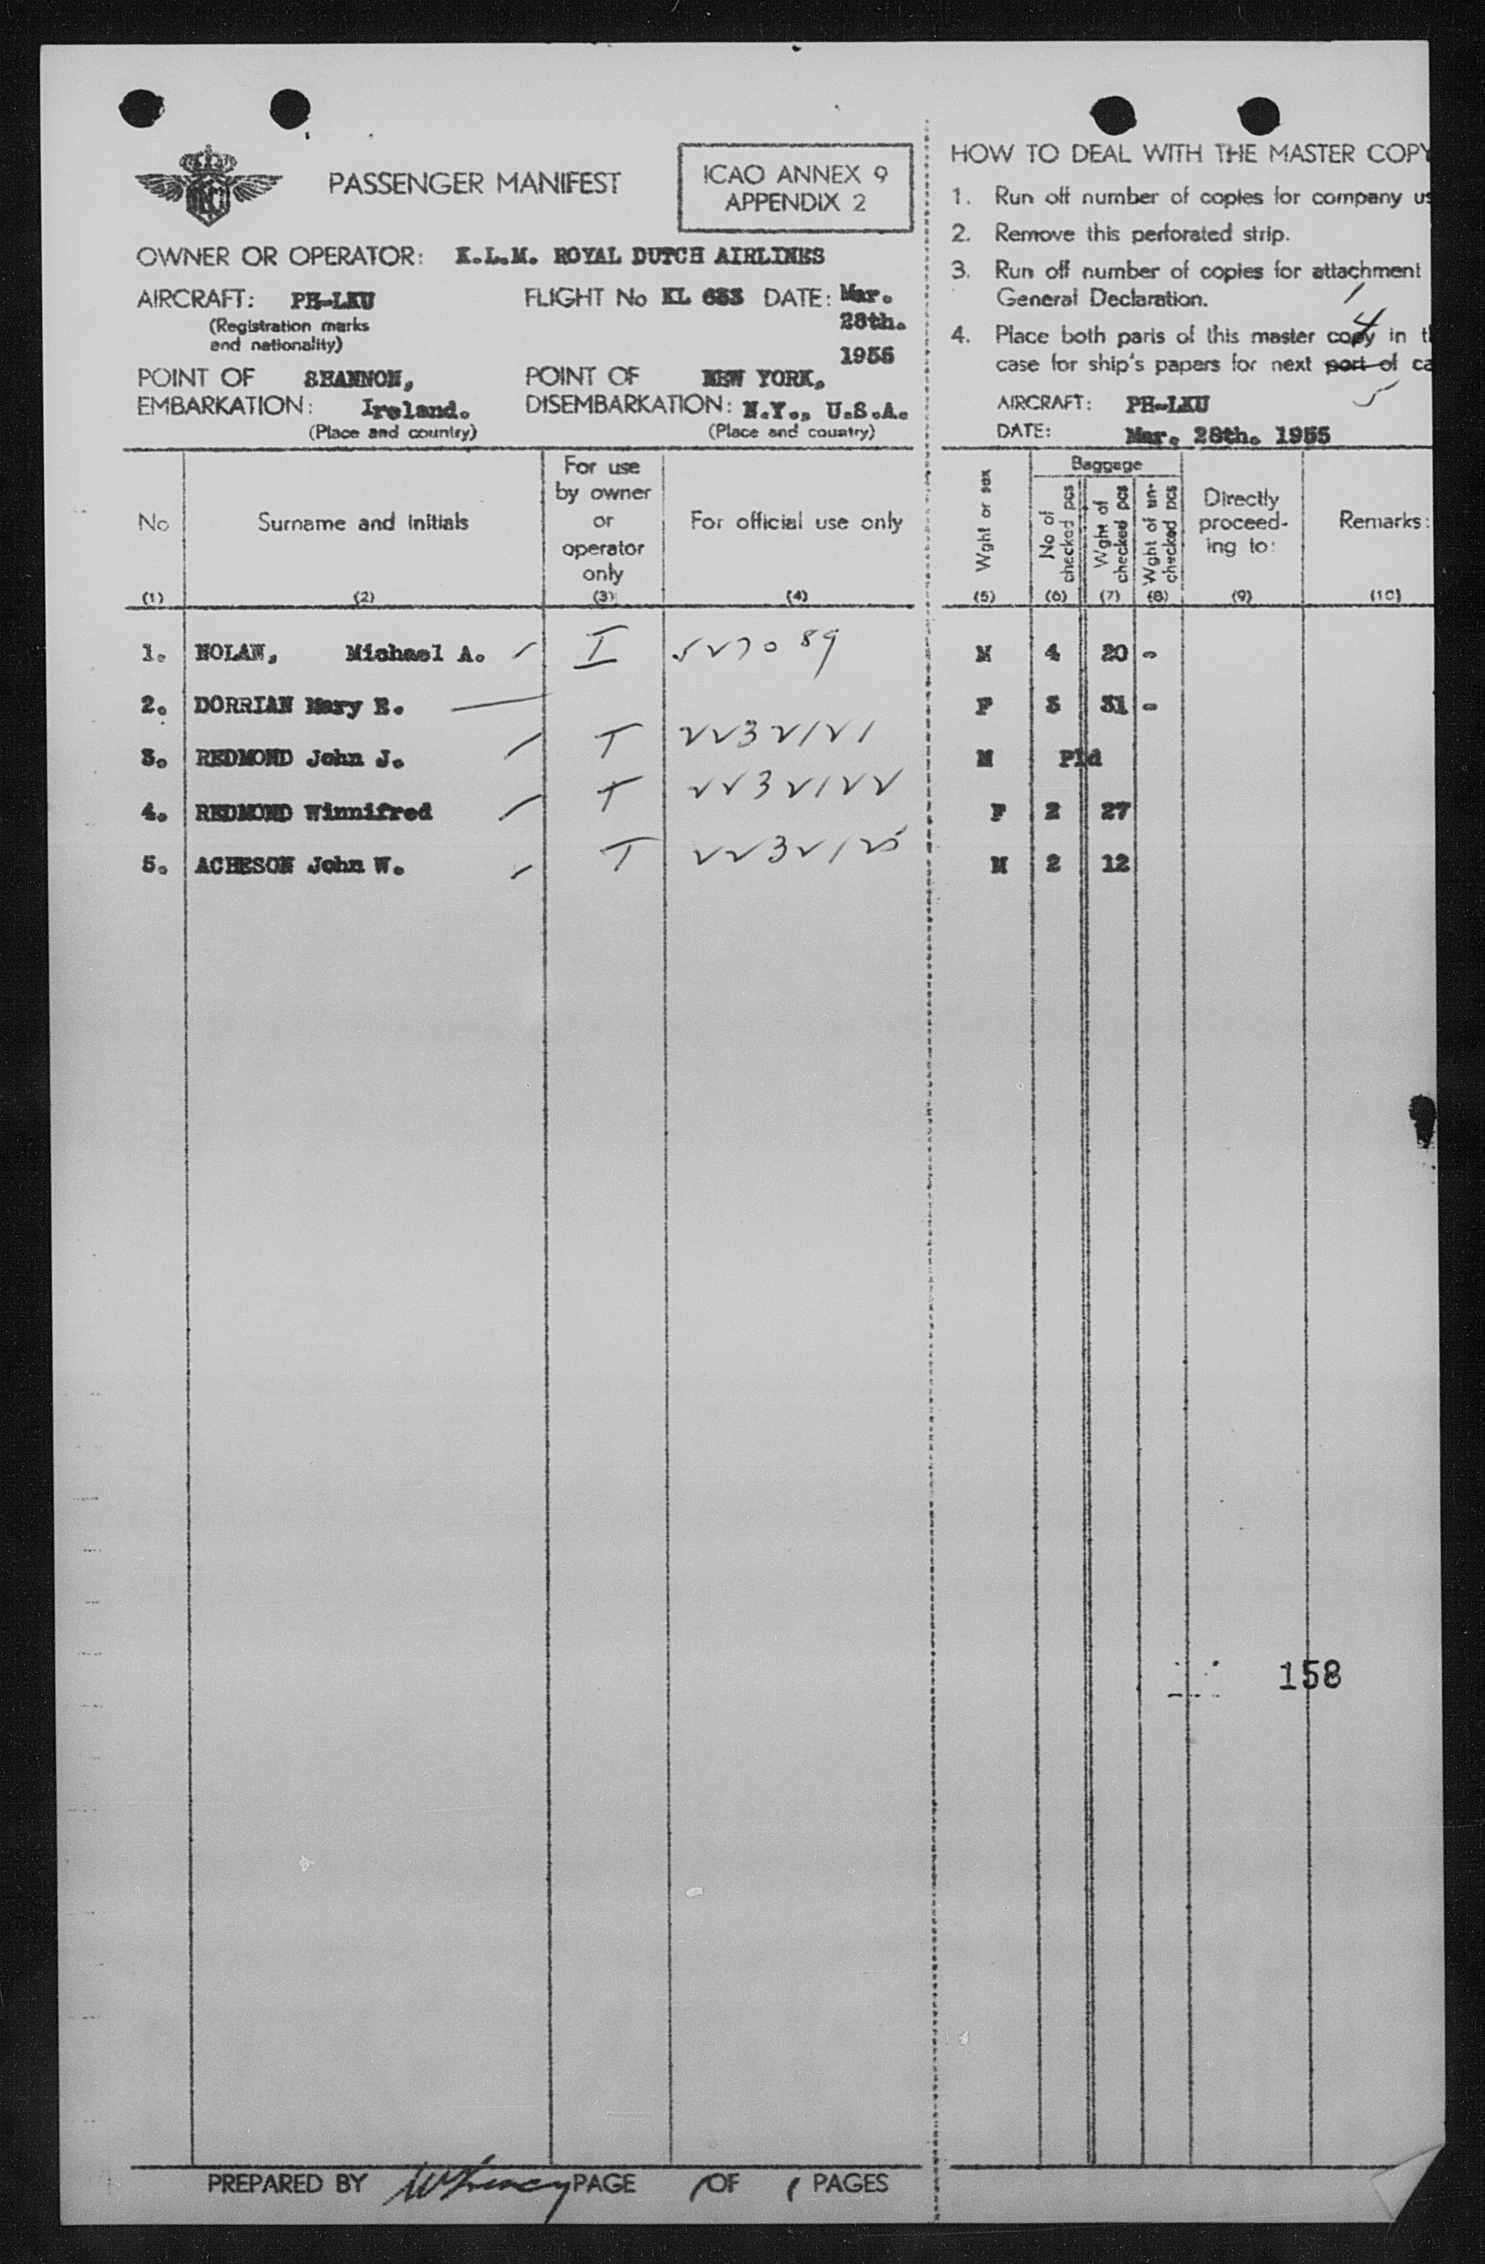 PASSENGER MANIFEST
ICAO ANNEX 9
APPENDIX 2
OWNER OR OPERATOR: K.L.M. ROYAL DUTCH AIRLINES
AIRCRAFT: PH-LKU
(Registration marks
and nationality)
FLIGHT No KL 633 DATE: Mar.
28th.
1955
POINT OF SHANNON,
EMBARKATION: Ireland.
(Place and country)
POINT OF NEW YORK,
DISEMBARKATION: N.Y., U.S.A.
(Place and country)
HOW TO DEAL WITH THE MASTER COPY
1. Run off number of copies for company us
2. Remove this perforated strip.
3. Run off number of copies for attachment
General Declaration.
4. Place both parts of this master copy in t
case for ship's papers for next port of ca
AIRCRAFT: PH-LKU
DATE: Mar. 28th. 1955
No
(1)
Surname and initials
(2)
For use
by owner
or
operator
only
(3)
For official use only
(4)
Wght or sex
(5)
Baggage
No of
checked pcs
(6)
Wght of
checked pcs
(7)
Wght of un-
checked pcs
(8)
Directly
proceed-
ing to:
(9)
Remarks:
(10)
1. NOLAN, Michael A. I 527089 M 4 20 -
2. DORRIAN Mary E. F 3 31 -
3. REDMOND John J. T 2232121 M Pld
4. REDMOND Winnifred T 2232122 F 2 27
5. ACHESON John W. T 2232125 M 2 12
158
PREPARED BY PAGE 1 OF 1 PAGES